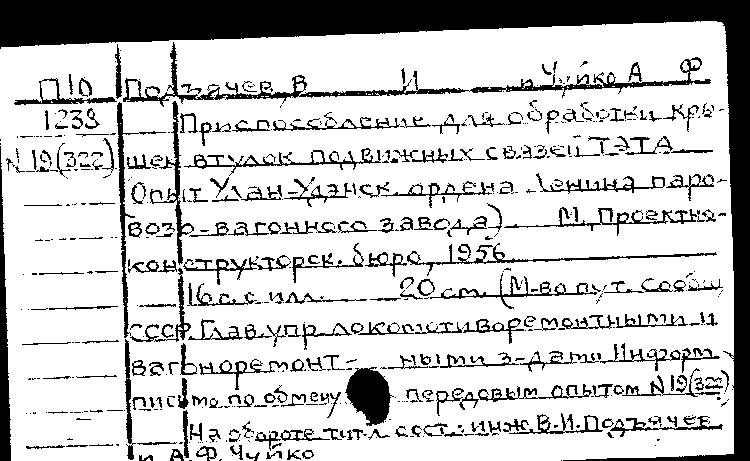 П10 Подъячев, В И и Чуйко, А Ф
1238 Приспособление для обработки кры-
N 19(322) шек втулок подвижных связей ТЭТА
Опыт Улан-Удэнск. ордена Ленина паро-
возо-вагонного завода). М., Проектно-
конструкторск. бюро, 1956
16 с. с илл. 20 см. (М-во пут. сообщ
СССР. Глав. упр. локомотиворемонтными и
вагоноремонт- ными з-дами Информ
письмо по обмену передовым опытом N 19(322)
На обороте тит. л сост.: инж. В. И. Подъячев
и А. Ф. Чуйко